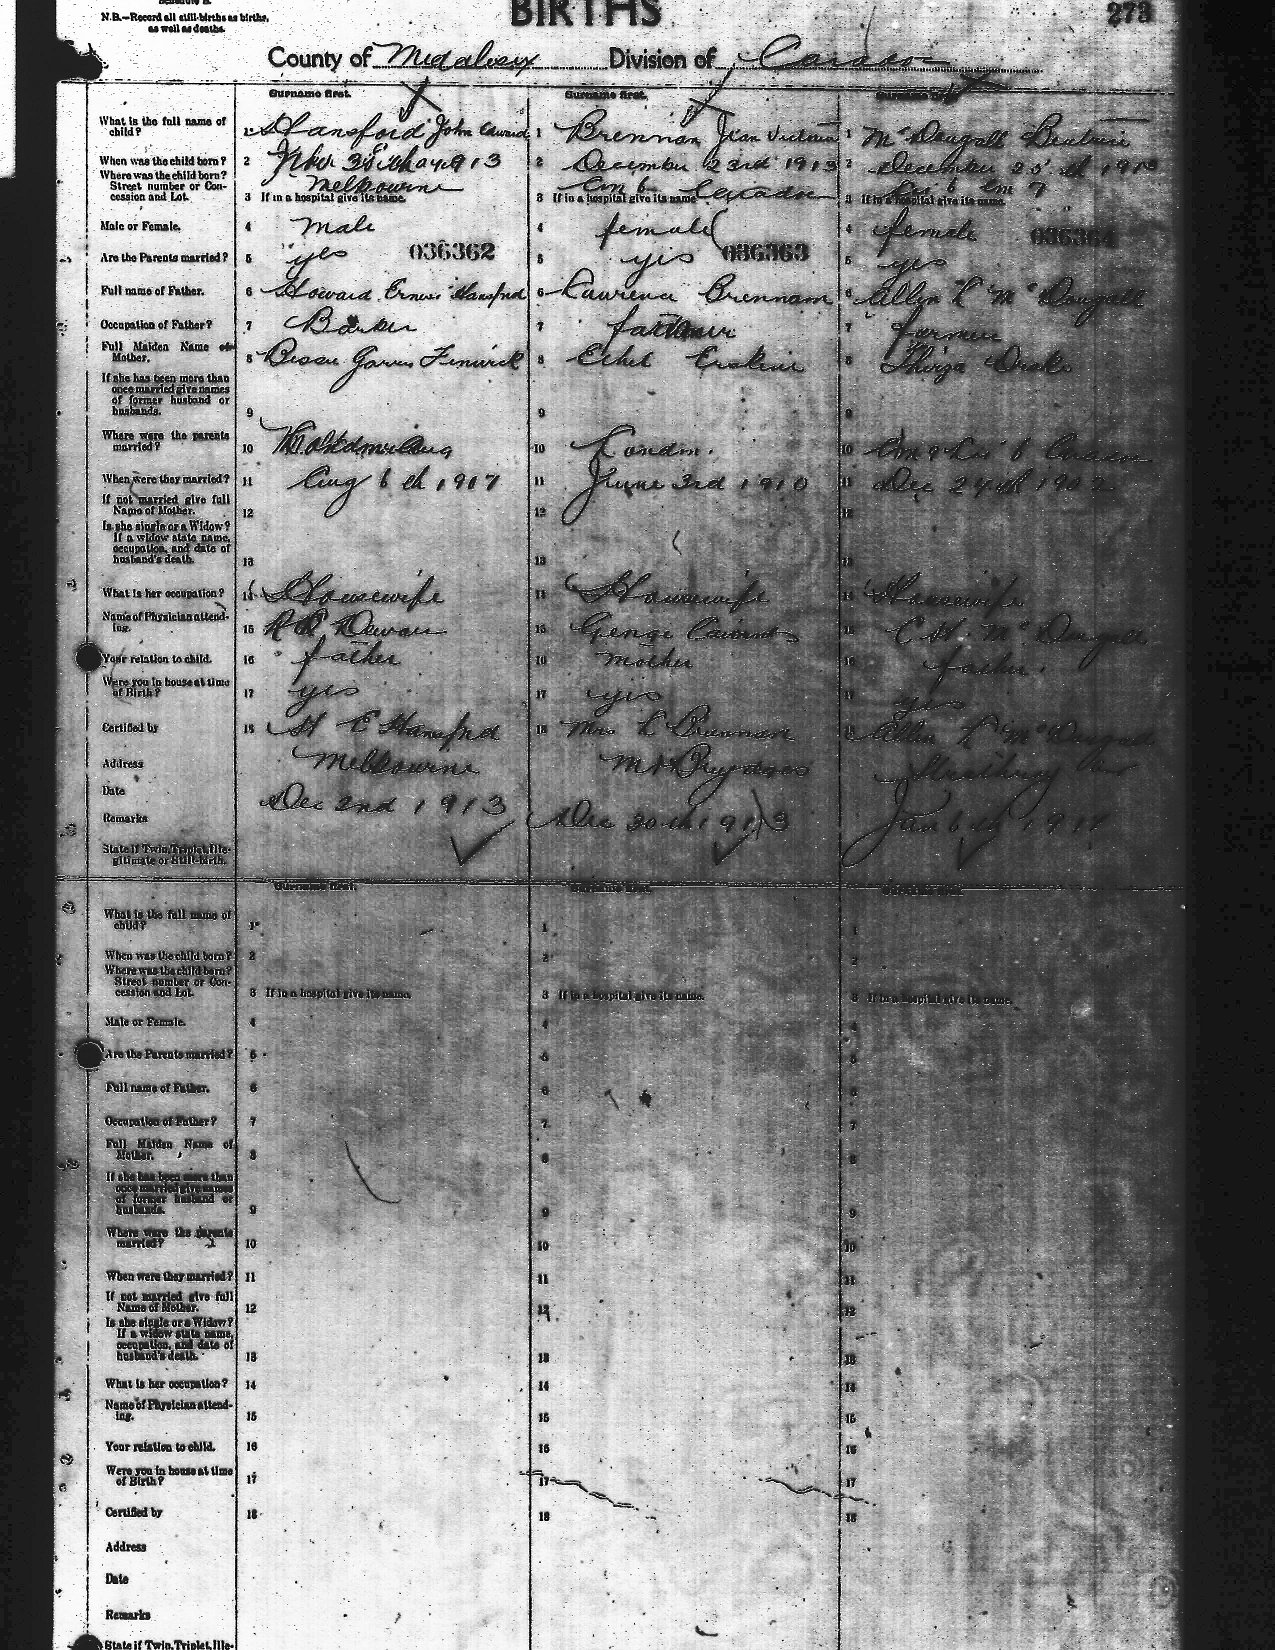 Schedule B.
N.B.—Record all still-births as births,
as well as deaths.
BIRTHS
273
County of Middlesex Division of Caradoc
Surname first.
Surname first.
Surname first.
What is the full name of child?
1 Hansford John Edward
1 Brennan Jean
1 McDougall Beatrice
When was the child born?
2 1913
2 December 23rd 1913
2 December 1913
Where was the child born? Street number or Concession and Lot.
Melbourne
Con 6 Caradoc
Con 7
3 If in a hospital give its name.
3 If in a hospital give its name
3 If in a hospital give its name.
Male or Female.
4 Male
4 female
4 female
Are the Parents married?
5 yes 036362
5 yes 036363
5 yes 036364
Full name of Father.
6 Howard Ernest Hansford
6 Lawrence Brennan
6 Allen L McDougall
Occupation of Father?
7 Banker
7 farmer
7 farmer
Full Maiden Name of Mother.
8 Fenwick
8 Ethel Erskine
8 Thirza Drake
If she has been more than once married give names of former husband or husbands.
9
9
9
Where were the parents married?
10
10 London.
10 Caradoc
When were they married?
11 Aug 6th
11 June 3rd 1910
11 Dec 24th 1902
If not married give full Name of Mother.
12
12
12
Is she single or a Widow? If a widow state name, occupation, and date of husband's death.
13
13
13
What is her occupation?
14 Housewife
14 Housewife
14 Housewife
Name of Physician attending.
15 Dewar
15 George
15 C.H. McDougall
Your relation to child.
16 father
16 mother
16 father.
Were you in house at time of Birth?
17 yes
17 yes
17 yes
Certified by
18 H E Hansford
18 Mrs L Brennan
18 Allen L McDougall
Address
Melbourne
Mt Brydges
Strathroy
Date
Dec 2nd 1913
Dec 30th 1913
Jan 6th 1914
Remarks
State if Twin, Triplet, Illegitimate or Still-birth.
Surname first.
Surname first.
Surname first.
What is the full name of child?
1
1
1
When was the child born?
2
2
2
Where was the child born? Street number or Concession and Lot.
3 If in a hospital give its name.
3 If in a hospital give its name.
3 If in a hospital give its name.
Male or Female.
4
4
4
Are the Parents married?
5
5
5
Full name of Father.
6
6
6
Occupation of Father?
7
7
7
Full Maiden Name of Mother.
8
8
8
If she has been more than once married give names of former husband or husbands.
9
9
9
Where were the parents married?
10
10
10
When were they married?
11
11
11
If not married give full Name of Mother.
12
12
12
Is she single or a Widow? If a widow state name, occupation, and date of husband's death.
13
13
13
What is her occupation?
14
14
14
Name of Physician attending.
15
15
15
Your relation to child.
16
16
16
Were you in house at time of Birth?
17
17
17
Certified by
18
18
18
Address
Date
Remarks
State if Twin, Triplet, Ille-